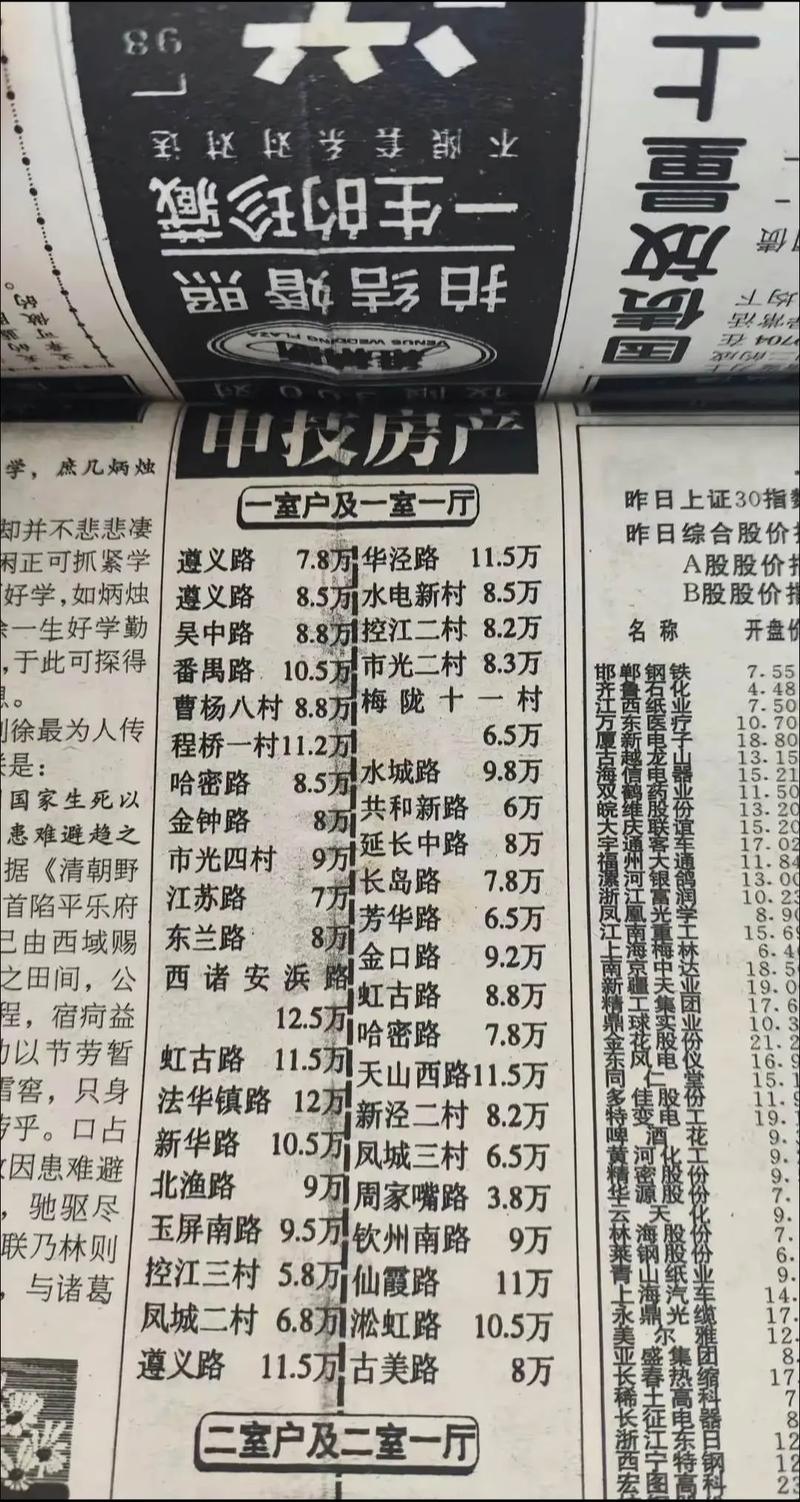 98
不限套系对对送
一生的珍藏
拍结婚照
VENUS WEDDING PLAZA
国债放量上
申技房产
一室户及一室一厅
遵义路 7.8万
遵义路 8.5万
吴中路 8.8万
番禺路 10.5万
曹杨八村 8.8万
程桥一村 11.2万
哈密路 8.5万
金钟路 8万
市光四村 9万
江苏路 7万
东兰路 8万
西诸安浜路
12.5万
虹古路 11.5万
法华镇路 12万
新华路 10.5万
北渔路 9万
玉屏南路 9.5万
控江三村 5.8万
凤城二村 6.8万
遵义路 11.5万
华泾路 11.5万
水电新村 8.5万
控江二村 8.2万
市光二村 8.3万
梅陇十一村
6.5万
水城路 9.8万
共和新路 6万
延长中路 8万
长岛路 7.8万
芳华路 6.5万
金口路 9.2万
虹古路 8.8万
哈密路 7.8万
天山西路 11.5万
新泾二村 8.2万
凤城三村 6.5万
周家嘴路 3.8万
钦州南路 9万
仙霞路 11万
淞虹路 10.5万
古美路 8万
二室户及二室一厅
学，庶几炳烛
却并不悲悲凄
闲正可抓紧学
好学，如炳烛
余一生好学勤
，于此可探得
。
则徐最为人传
是：
国家生死以
患难避趋之
据《清朝野
首陷平乐府
已由西域赐
之田间，公
程，宿疴益
以节劳暂
雪窖，只身
乎。口占
因患难避
，驰驱尽
联乃林则
，与诸葛
昨日上证30指数
昨日综合股价指
A股股价指
B股股价指
名称 开盘价
邯郸钢铁 7.55
齐鲁石化 4.48
江西纸业 7.50
万东医疗 10.70
厦新电子 18.80
古越龙山 13.15
海信电器 15.21
双鹤药业 11.50
皖维股份 13.20
大庆联谊 15.20
宇通客车 17.02
福州大通 11.84
漯河银鸽 13.00
浙江富润 10.23
凤凰光学 8.90
江南重工 15.69
上海梅林 6.4
南京中达 18.5
新疆天业 19.0
精工集团 17.6
鼎球实业 10.3
金花股份 21.2
东风电仪 16.9
同仁堂 15.1
多佳股份 11.9
特变电工 19.
啤酒花 9.
黄河化工 9.
精密股份 9.
华源股份 7.
云天化 9.
林海股份 7.
莱钢股份 6.
青山纸业 9.
上海汽车 14.
永鼎光缆 17.
美尔雅 12.
亚盛集团 8.
长春热缩 17
稀土高科 7
长征电器 8
浙江东日 12
西宁特钢 12
宏图高科 23